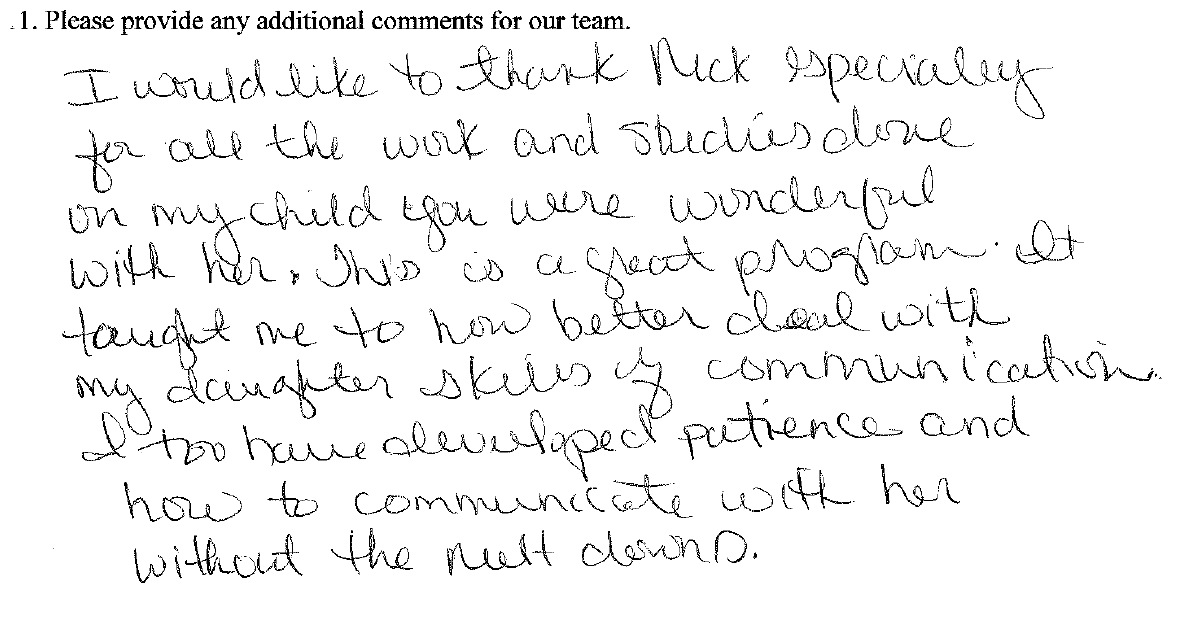 .1. Please provide any additional comments for our team.
I would like to thank Nick especialey
for all the work and studies done
on my child you were wonderful
with her. This is a great program. It
taught me to how better deal with
my daughter skills of communication.
I too have developed patience and
how to communicate with her
without the melt downs.